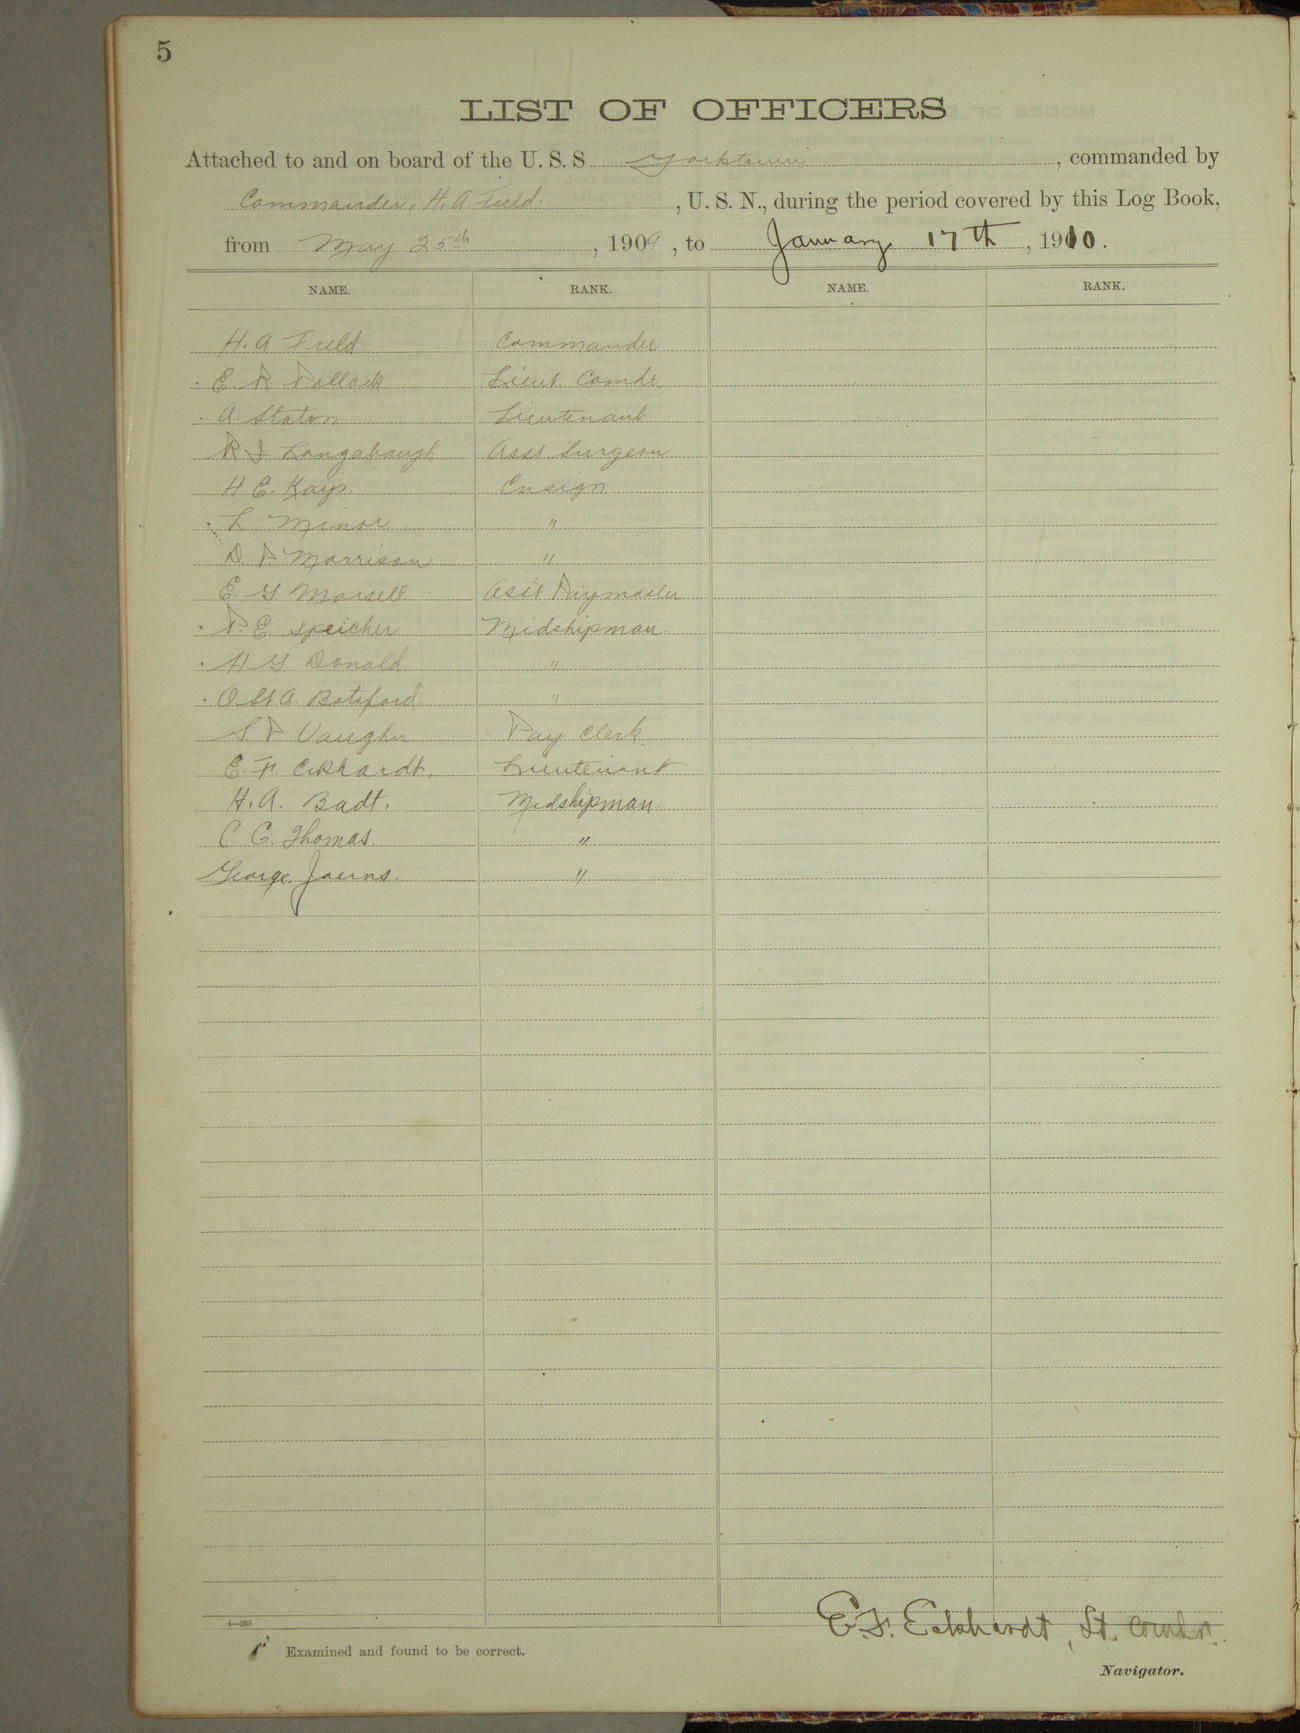 5
LIST OF OFFICERS
Attached to and on board of the U. S. S Yorktown, commanded by
Commander, H. A Field., U. S. N., during the period covered by this Log Book,
from May 25th, 1909, to January 17th, 1910.
NAME. RANK. NAME. RANK.
H. A Field Commander
E. R Pollock Lieut. Comdr.
A. Staton Lieutenant
R I Longabaugh Asst Surgeon
H E. Kays. Ensign
L Minor "
D. P. Morrison "
E. G Morsell Asst Paymaster
P. E. Speicher Midshipman.
H G Donald "
O St A. Botsford "
S P Vaughn Pay Clerk.
E. F. Eckhardt. Lieutenant
H. A. Badt. Midshipman.
C C. Thomas. "
George Joerns. "
E. F. Eckhardt, Lt. Comdr.
4—265
Examined and found to be correct.
Navigator.